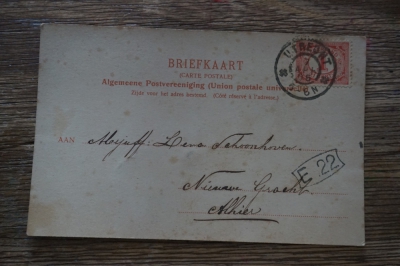 BRIEFKAART
(CARTE POSTALE)
Algemeene Postvereeniging (Union postale univ
Zijde voor het adres bestemd. (Côté réservé à l'adresse.)
UTRECHT
AAN
Schoonhoven
Nieuwe Gracht
Alhier
E 22